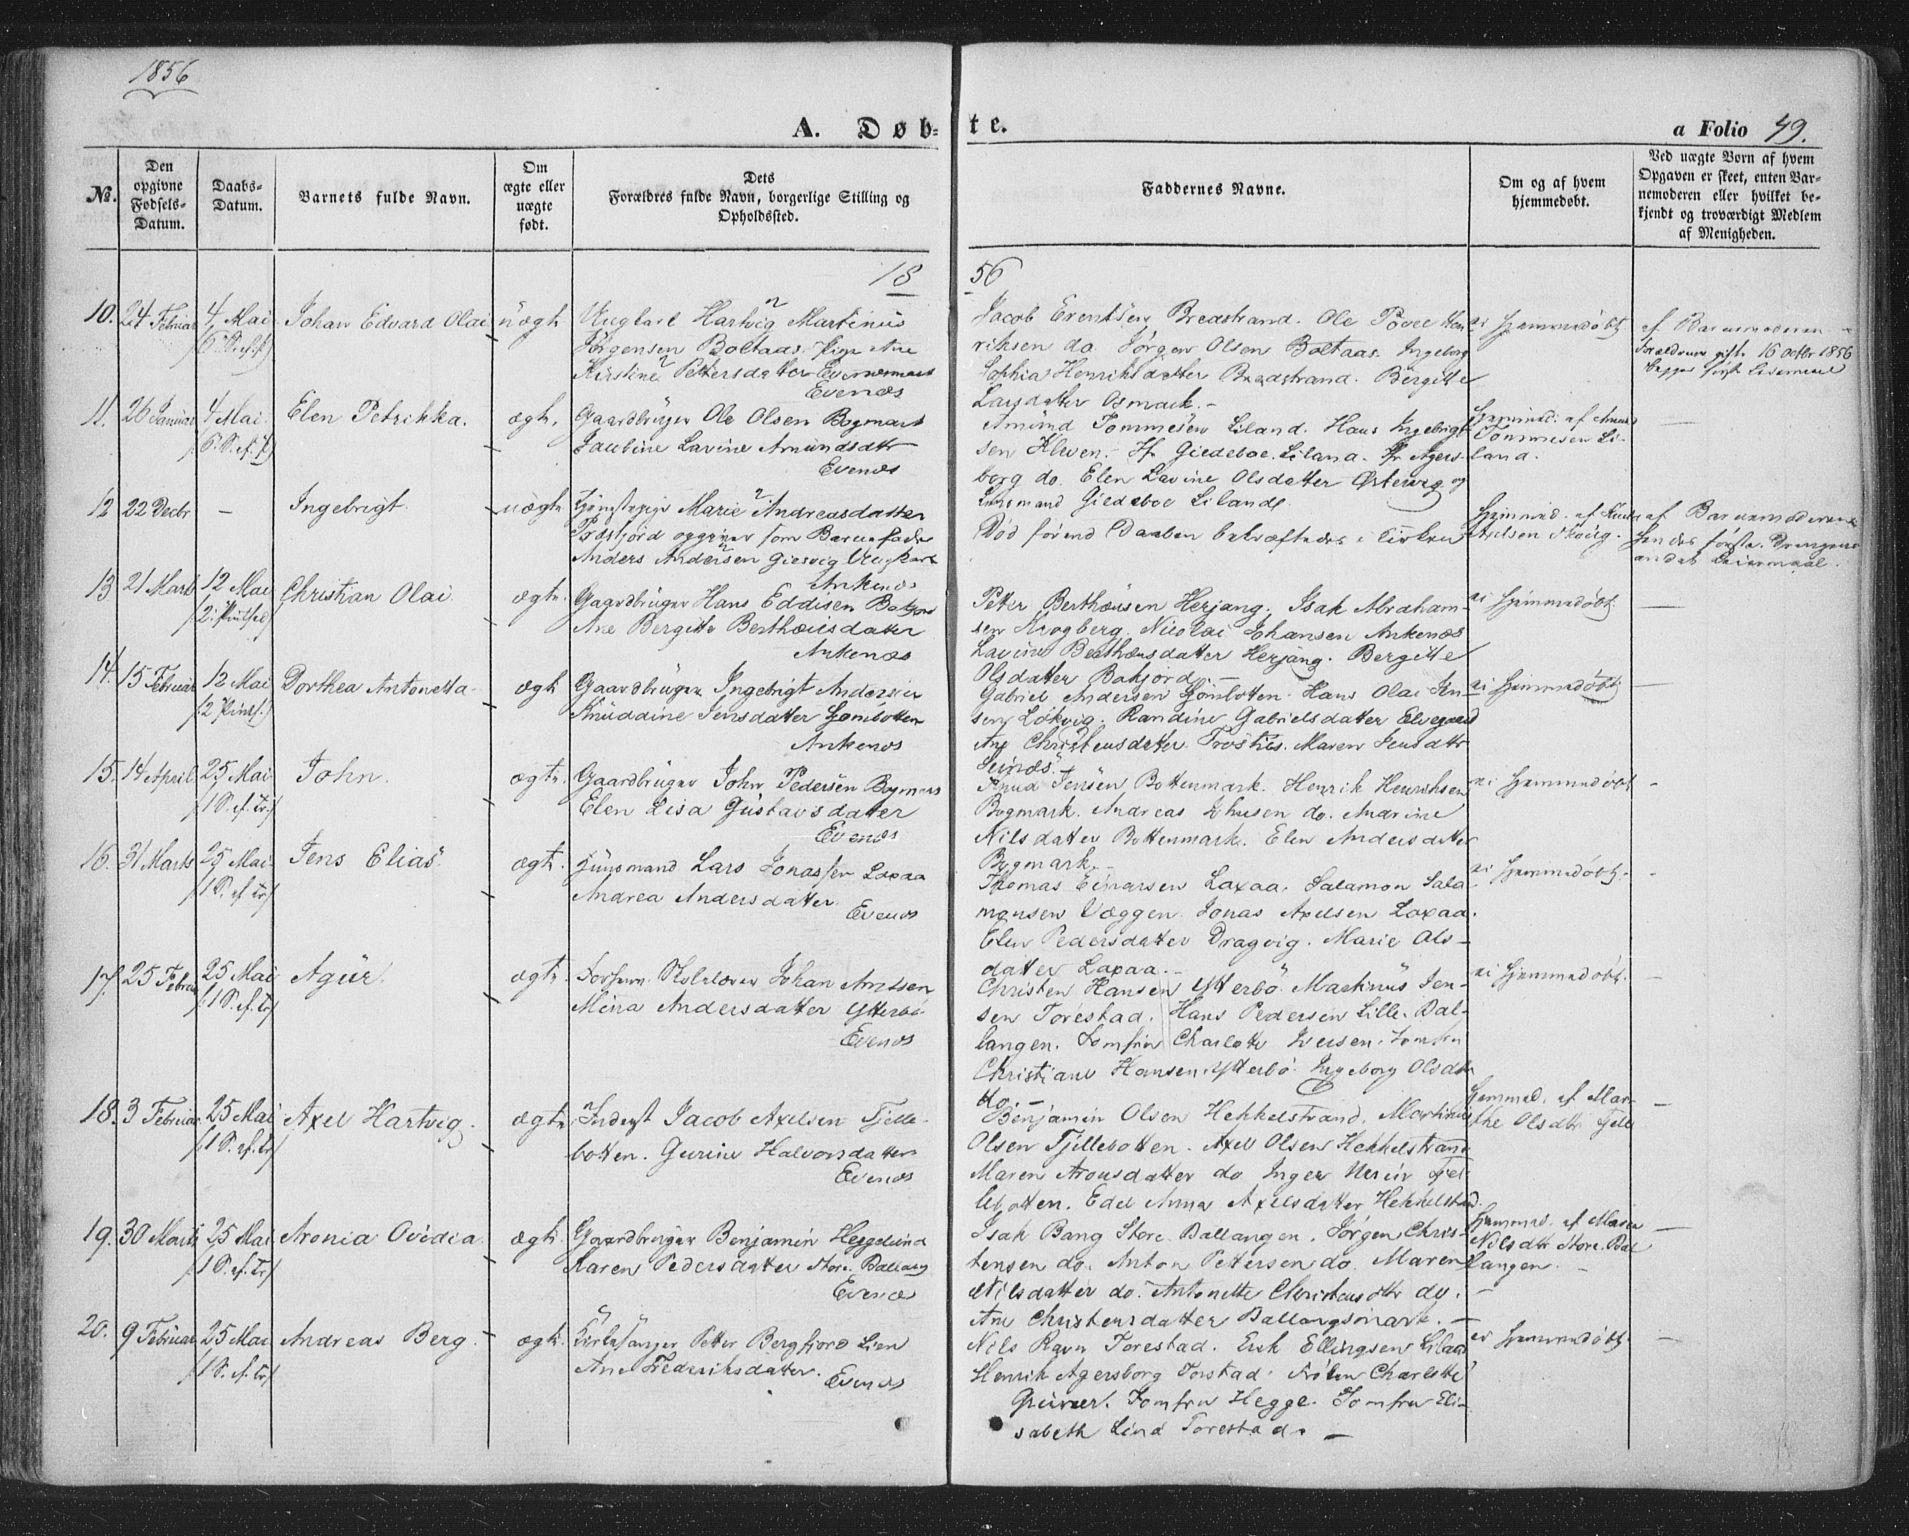 1856
A. Døb-
te.
a Folio 49.
No.
Den opgivne Fødsels-Datum.
Daabs-Datum.
Barnets fulde Navn.
Om ægte eller uægte født.
Dets
Forældres fulde Navn, borgerlige Stilling og
Opholdssted.
Faddernes Navne.
Om og af hvem
hjemmedøbt.
Ved uægte Børn af hvem
Opgaven er skeet, enten Bar-
nemoderen eller hvilket be-
kjendt og troværdigt Medlem
af Menigheden.
18
56
10. 24 Februar 4 Mai Johan Edvard Olai uægt Ungkarl Hartvig Martinus
Jørgensen Boltaas. Pige Ane
Kirstine Pettersdatter
Evenæs
Jacob Erentsen Bredstrand. Ole Povel Hen-
riksen do Jørgen Olsen Boltaas. Ingeborg
Sophia Henriksdatter Bredstrand. Bergitte
Larsdatter Osmark. -
ei hjemmedøbt
af Barnemoderen -
Forældrene gift 16 octbr 1856
11. 26 Januar 4 Mai Elen Petrikka. ægt. Gaardbruger Ole Olsen Bogmark
Jacobine Lavine Amundsdtr
Evenæs
Amund Tommesen Liland. Hans Ingebrigt-
sen Kleven. Hr Giedeboe Liland. Fr Agers-
borg do. Elen Lavine Olsdatter Østervig og
Lensmand Giedeboe Liland.
hjemmed. af Amund
Tommesen Li-
land.
12 22 Decbr - Ingebrigt. uægte Tjenestepige Marie Andreasdatter
opgiver som Barnefader
Anders Andersen Giesvig Ungkarl
Ankenæs
Død førend Daaben bekræftedes i Kirken
hjemmed. af
af Barnemoderen
13 21 Marts 12 Mai Christian Olai ægte. Gaardbruger Hans Eddisen
Ane Bergitte Berthæusdatter
Ankenæs
Peter Berthæusen Herjang. Isak Abraham-
sen Krogberg. Nicolai Johansen Ankenæs
Lavine Berthæusdatter Herjang. Bergitte
Olsdatter Bakjord -
ei hjemmedøbt
14. 15 Februar 12 Mai Dorthea Antonetta ægte Gaardbruger Ingebrigt Andersen
Knuddine Jensdatter
Ankenæs
Gabriel Andersen Hans Olai Jen-
sen Randine Gabrielsdatter Elvegaard
Ane Christensdatter Maren Jensdtr
ei hjemmedøbt
15. 14 April 25 Mai John. ægte. Gaardbruger John Pedersen Bogmark
Elen Lisa Gustavsdatter
Evenæs
Knud Jensen Bottenmark. Henrik Henriksen
Bogmark. Andreas Johnsen do. Andrine
Nilsdatter Bottenmark. Elen Andersdatter
Bogmark. -
ei hjemmedøbt
16. 31 Marts 25 Mai Jens Elias. ægte. Huusmand Lars Jonassen Laxaa
Andrea Andersdatter.
Evenæs
Thomas Einarsen Laxaa. Salamon Sala-
monsen Væggen. Jonas Axelsen Laxaa.
Elen Pedersdatter Dragvig. Marie Ols-
datter Laxaa. -
ei hjemmedøbt.
17. 25 Febru 25 Mai Agur. ægte. Skolelærer Johan Arntsen
Mina Andersdatter Ytterbø
Evenæs
Christen Hansen Ytterbø. Martinus Jen-
sen Forestad. Hans Pedersen Lille Bal-
langen. Jomfru Charlotte Iversen. Jomfru
Christiane Hansen Ytterbø. Ingeborg Olsdtr
do. -
ei hjemmedøbt.
18. 3 Februar 25 Mai Axel Hartvig. ægte. Inderst Jacob Axelsen Tjelle-
botten. Gurine Halvorsdatter
Evenæs
Benjamin Olsen Hekkelstrand. Martinus
Olsen Tjellebotten. Axel Olsen Hekkelstrand
Maren Aronsdatter do Inger Tjel-
lebotten. Edel Anna Axelsdatter Hekkelstrand.
hjemmed. af Mar-
the Olsdtr Tjelle
19. 30 Marts 25 Mai Aronia Ovidia. ægte. Gaardbruger Benjamin Heggelund
Karen Pedersdatter Store Ballang
Evenæs
Isak Bang Store Ballangen. Jørgen Chris-
tensen do. Anton Pettersen do. Maren
Nilsdatter do. Antonette Christensdtr do.
Ane Christensdatter Ballangsmark. -
hjemmed. af Maren
Nilsdtr Store Bal
langen. -
20. 9 Februar 25 Mai Andreas Berg. ægte. Kirkesanger Petter Bergfjord Lien
Ane Frederiksdatter.
Evenæs
Nils Ravn Forestad. Erik Ellingsen Liland
Henrik Agersborg Forstad. Frøken Charlotte
Grüner. Jomfru Hegge. Jomfru Eli-
sabeth Lind Forestad. -
ei hjemmedøbt.